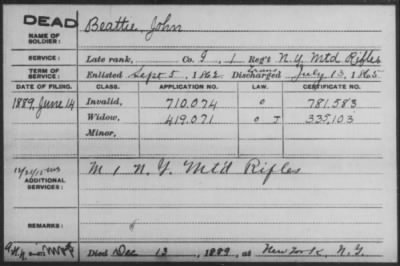 DEAD
NAME OF SOLDIER: Beattie, John
SERVICE: Late rank, Co. I, 1 Reg't N.Y. Mtd Rifles
TERM OF SERVICE: Enlisted Sept. 5, 1862 Discharged July 13, 1865
DATE OF FILING. CLASS. APPLICATION NO. LAW. CERTIFICATE NO.
1889, June 14 Invalid, 710.074 0 781.583
Widow, 419.071 0 J 335,103
Minor,
ADDITIONAL SERVICES: M 1 N.Y. Mt'd Rifles
REMARKS:
Died Dec 13, 1889, at New York, N.Y.